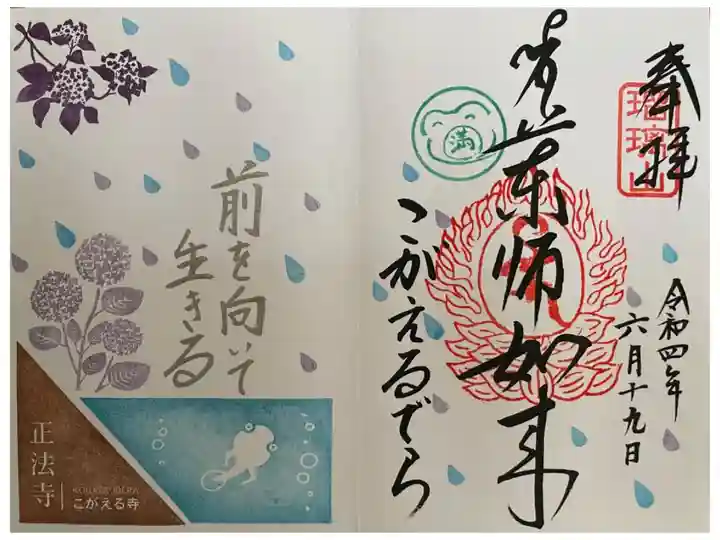 奉拝
瑠璃山
令和四年
六月十九日
薬師如来
満
こがえるでら
前を向いて
生きる
正法寺
KOGAERUDERA
こがえる寺